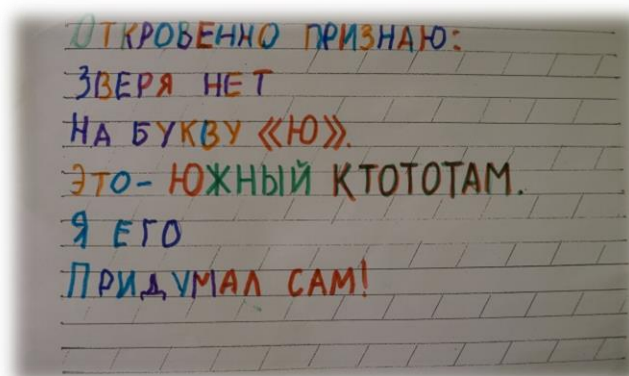 ОТКРОВЕННО ПРИЗНАЮ:
ЗВЕРЯ НЕТ
НА БУКВУ «Ю».
ЭТО- ЮЖНЫЙ КТОТОТАМ.
Я ЕГО
ПРИДУМАЛ САМ!